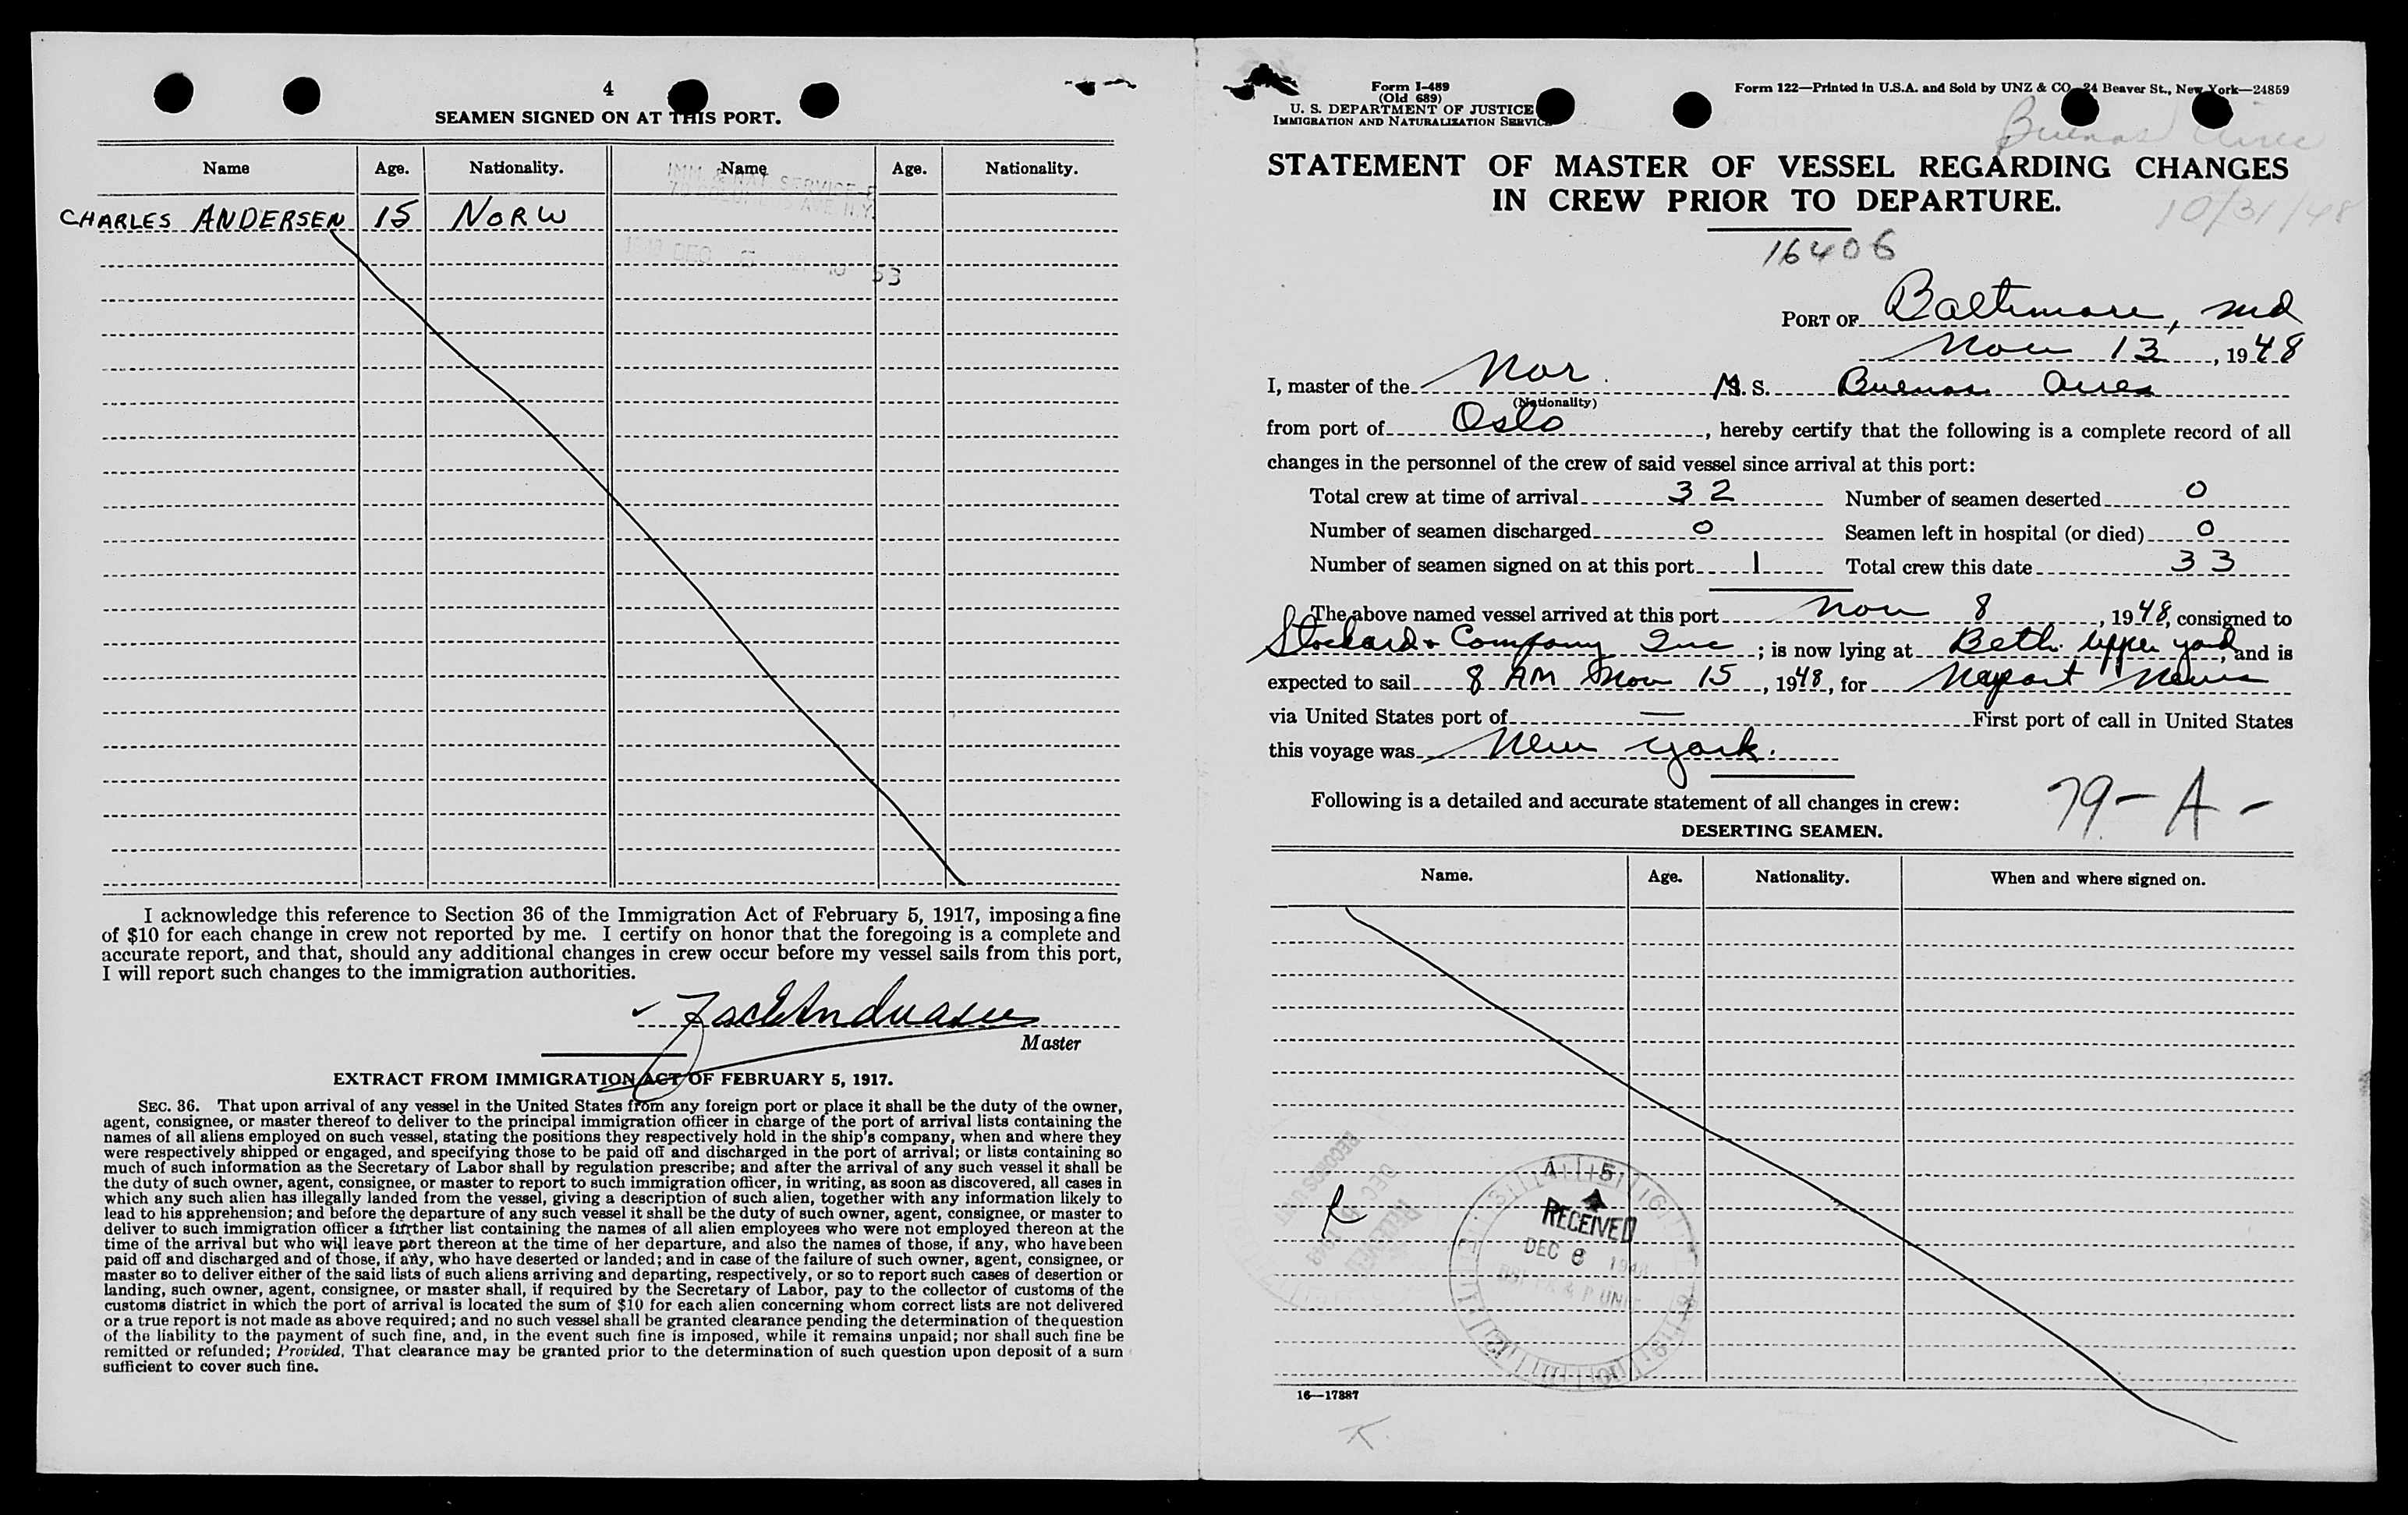 4
SEAMEN SIGNED ON AT THIS PORT.
Name Age. Nationality. Name Age. Nationality.
CHARLES ANDERSEN 15 NORW
53
I acknowledge this reference to Section 36 of the Immigration Act of February 5, 1917, imposing a fine
of $10 for each change in crew not reported by me. I certify on honor that the foregoing is a complete and
accurate report, and that, should any additional changes in crew occur before my vessel sails from this port,
I will report such changes to the immigration authorities.
Master
EXTRACT FROM IMMIGRATION ACT OF FEBRUARY 5, 1917.
SEC. 36. That upon arrival of any vessel in the United States from any foreign port or place it shall be the duty of the owner,
agent, consignee, or master thereof to deliver to the principal immigration officer in charge of the port of arrival lists containing the
names of all aliens employed on such vessel, stating the positions they respectively hold in the ship's company, when and where they
were respectively shipped or engaged, and specifying those to be paid off and discharged in the port of arrival; or lists containing so
much of such information as the Secretary of Labor shall by regulation prescribe; and after the arrival of any such vessel it shall be
the duty of such owner, agent, consignee, or master to report to such immigration officer, in writing, as soon as discovered, all cases in
which any such alien has illegally landed from the vessel, giving a description of such alien, together with any information likely to
lead to his apprehension; and before the departure of any such vessel it shall be the duty of such owner, agent, consignee, or master to
deliver to such immigration officer a further list containing the names of all alien employees who were not employed thereon at the
time of the arrival but who will leave port thereon at the time of her departure, and also the names of those, if any, who have been
paid off and discharged and of those, if any, who have deserted or landed; and in case of the failure of such owner, agent, consignee, or
master so to deliver either of the said lists of such aliens arriving and departing, respectively, or so to report such cases of desertion or
landing, such owner, agent, consignee, or master shall, if required by the Secretary of Labor, pay to the collector of customs of the
customs district in which the port of arrival is located the sum of $10 for each alien concerning whom correct lists are not delivered
or a true report is not made as above required; and no such vessel shall be granted clearance pending the determination of the question
of the liability to the payment of such fine, and, in the event such fine is imposed, while it remains unpaid; nor shall such fine be
remitted or refunded; Provided, That clearance may be granted prior to the determination of such question upon deposit of a sum
sufficient to cover such fine.
Form I-489
(Old 689)
U. S. DEPARTMENT OF JUSTICE
IMMIGRATION AND NATURALIZATION SERVICE
Form 122—Printed in U.S.A. and Sold by UNZ & CO 24 Beaver St., New York—24859
Buenos Aires
STATEMENT OF MASTER OF VESSEL REGARDING CHANGES
IN CREW PRIOR TO DEPARTURE.
10/31/48
16406
PORT OF Baltimore, Md
Nov 13, 1948
I, master of the Nor. M. S. Buenos Aires
(Nationality)
from port of Oslo, hereby certify that the following is a complete record of all
changes in the personnel of the crew of said vessel since arrival at this port:
Total crew at time of arrival 32 Number of seamen deserted 0
Number of seamen discharged 0 Seamen left in hospital (or died) 0
Number of seamen signed on at this port 1 Total crew this date 33
The above named vessel arrived at this port Nov 8, 1948, consigned to
Stockard & Company Inc; is now lying at Beth. Upper yard, and is
expected to sail 8 AM Nov 15, 1948, for Newport News
via United States port of — First port of call in United States
this voyage was New York.
Following is a detailed and accurate statement of all changes in crew:
79-A-
DESERTING SEAMEN.
Name. Age. Nationality. When and where signed on.
RECEIVED
DEC 8 1948
16—17887